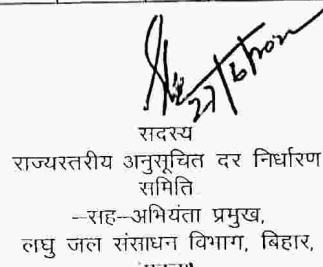 27/6/2022
सदस्य
राज्यस्तरीय अनुसूचित दर निर्धारण
समिति
–सह–अभियंता प्रमुख,
लघु जल संसाधन विभाग, बिहार,